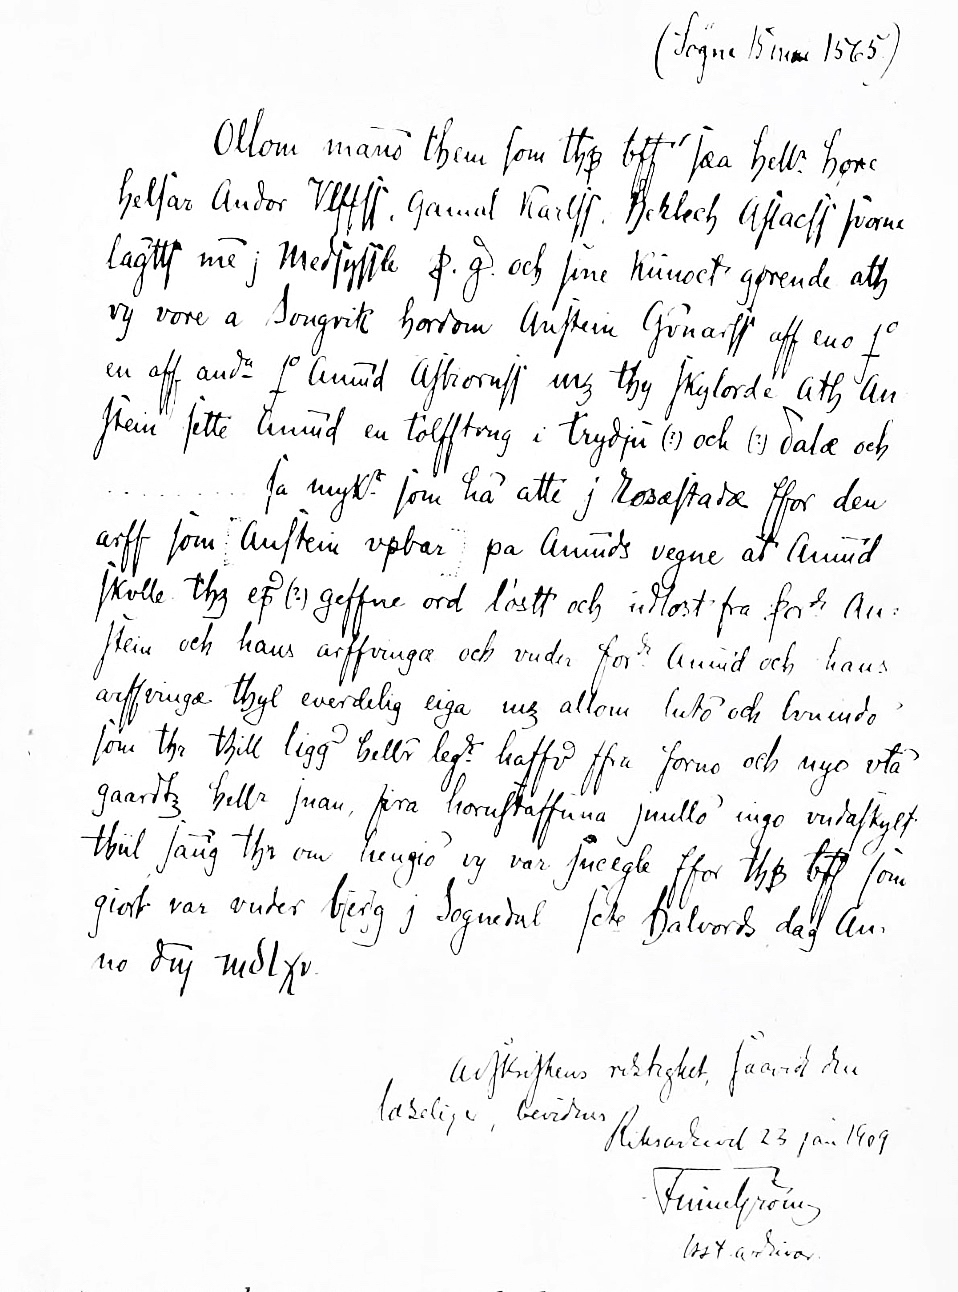 (Sogne 15 mai 1565.)
Ollom mānō them som thꝫ bff sæa hellr høre
helsar Andor Vlffss. Gamal Karlss. Beklech Aslacss svorne
lagtts mē j Medsyssle p. g. och sine kunoct gørende ath
vy vore a Songvik hordom Anstein Gūnarss aff eno f°
en aff andr f° Amūd Asbiornss mꝫ thy skylorde ath An
stein sette Amūd en tolfftvng i trydju (?) och (?) dalæ och
. . . . . . . . . . sa mykr som hā atte j Rosæstadæ ffor den
arff som Anstein vpbar pa Amūds vegne at Amūd
skvlle thꝫ (?) geffne ord løstt och vdløst fra ford An:
stein och hans arffvingæ och vnder ford Amūd och hans
arffvingæ thyl everdelig eiga mꝫ allom lutō och lvnindō
som thr thill ligg hellr legt haffr ffra forno och nyo vtā
gaardtꝫ hellr jnan, fira hornstaffuna jnullō ingo vndaskylt
thiil sāng thr om hengiō vy var jncegle ffor thꝫ bff som
giort var vnder bjerg j Sognedal scte Halvords dag An:
no dnj mdlxv.
Avskriftens riktighet, saavidt den
læselig er, bevidnes
Riksarkivet 23 jan 1909
asst. arkivar.